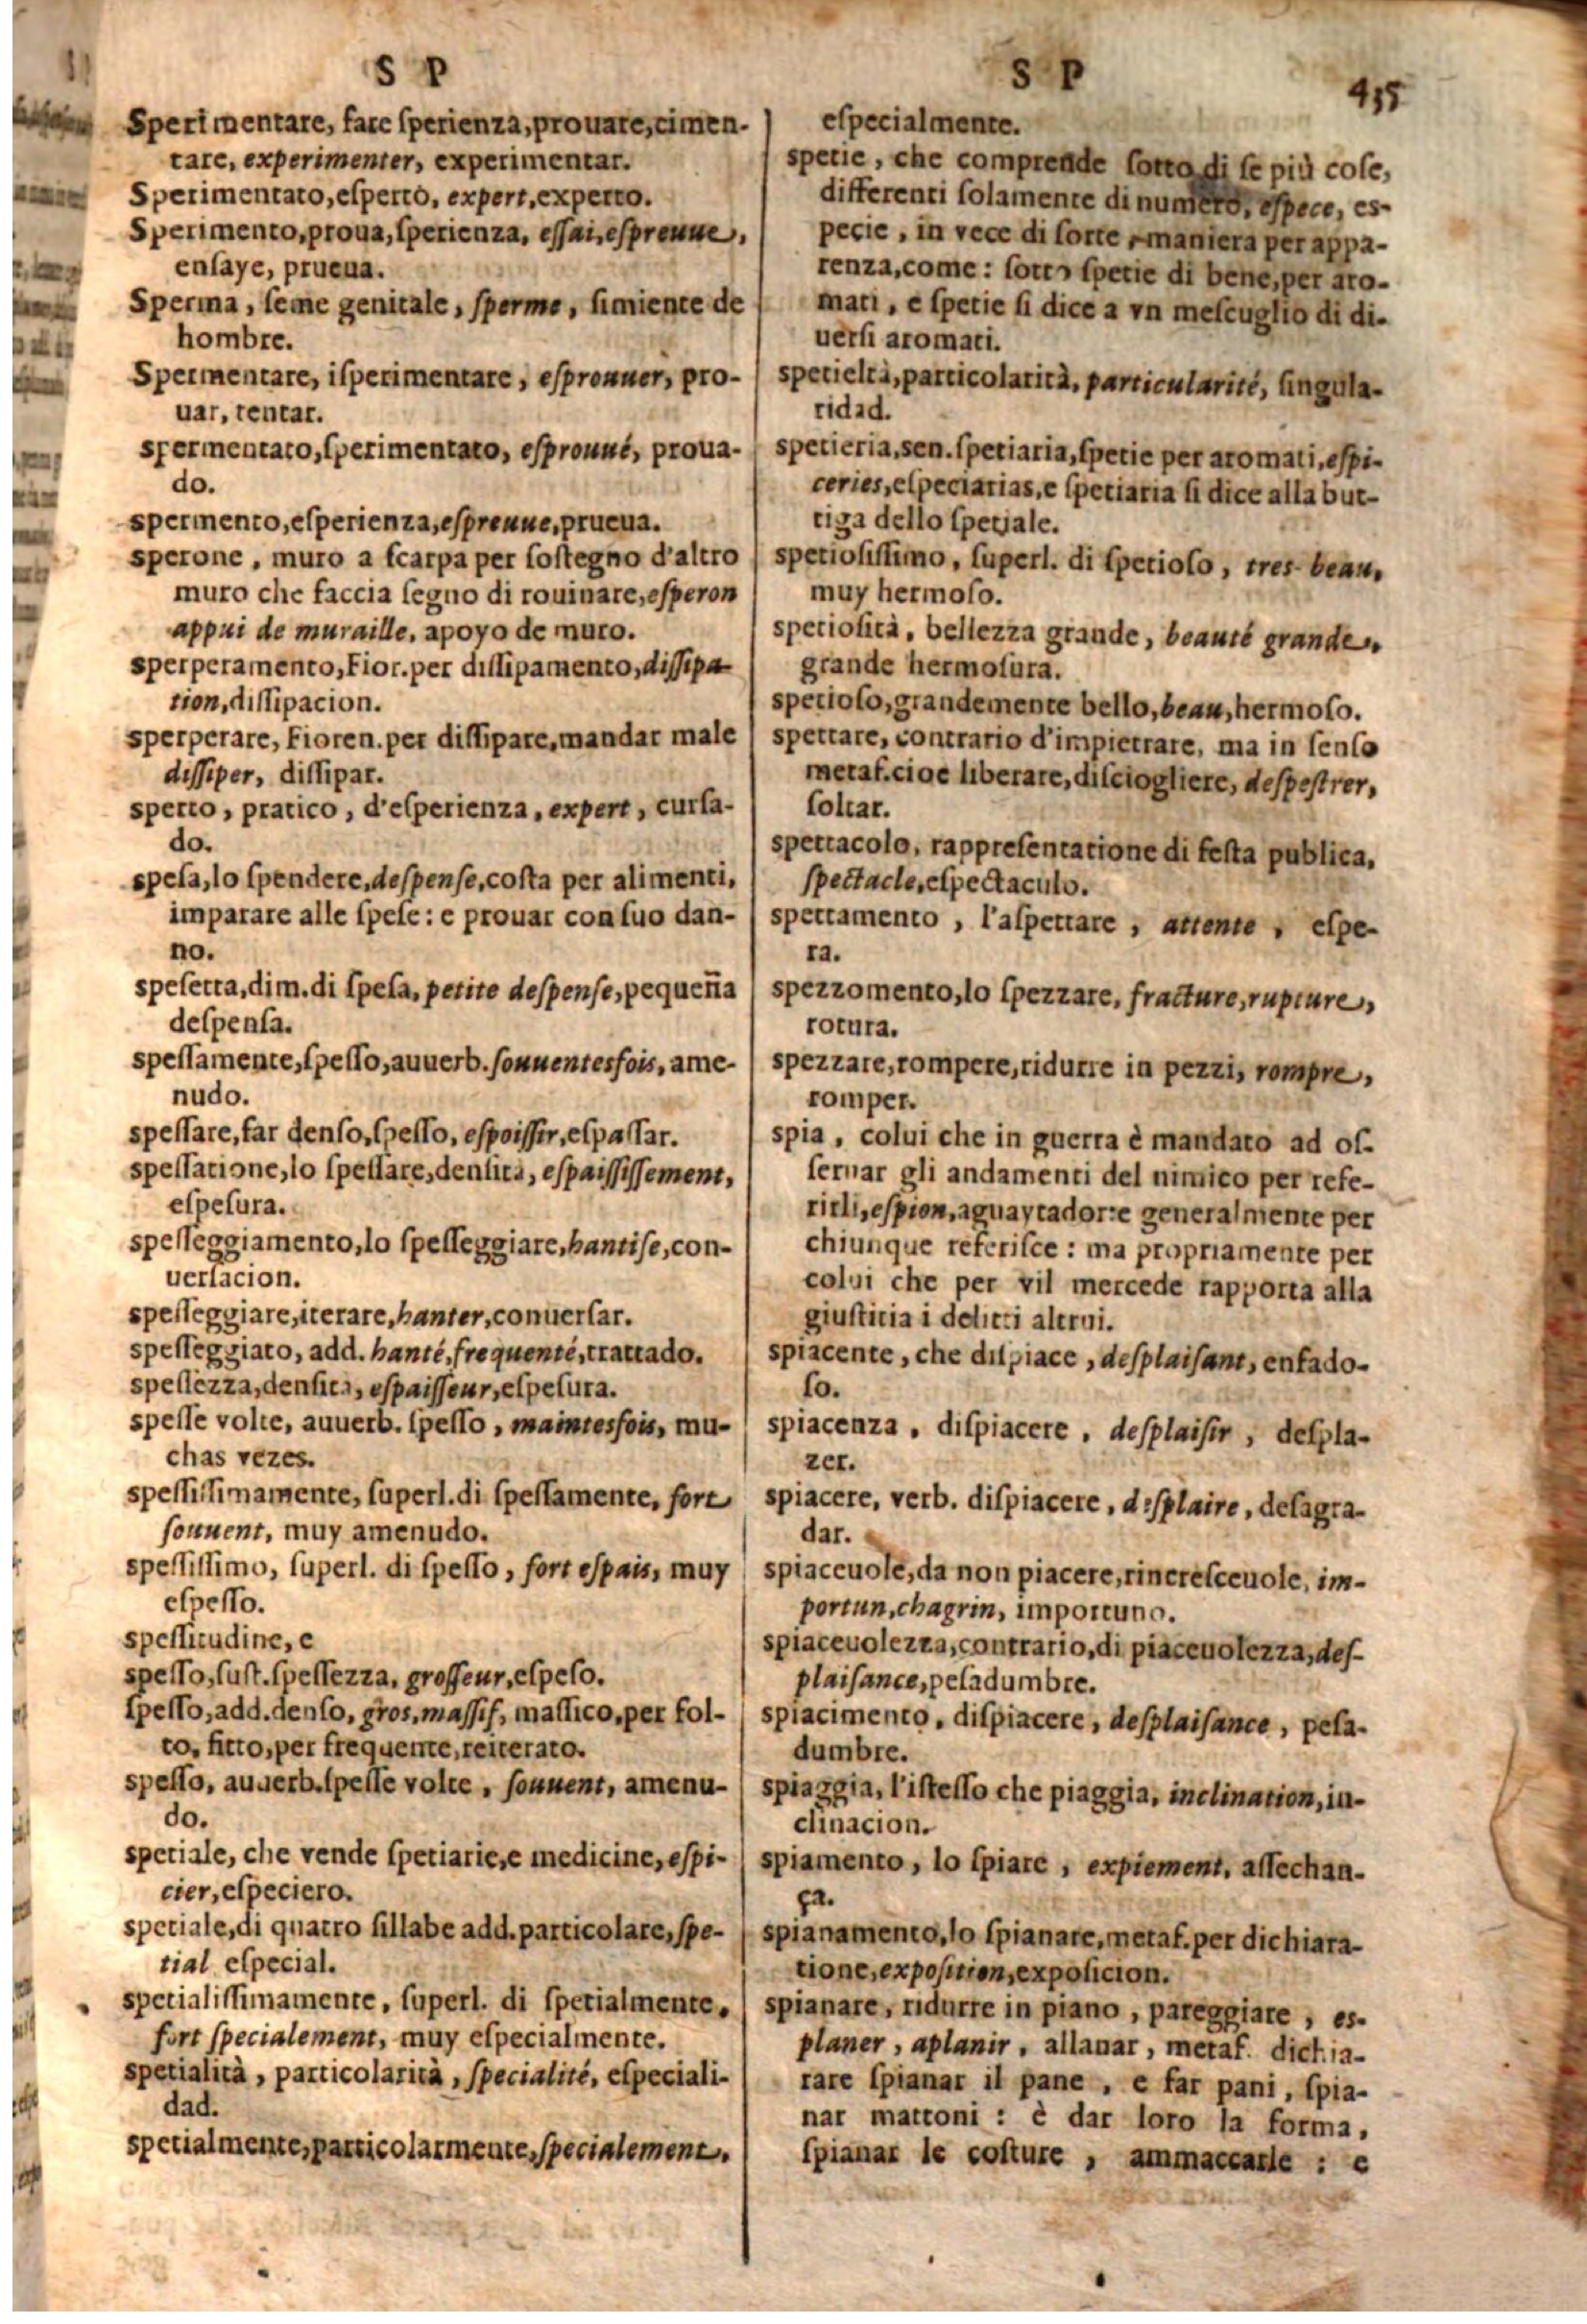 S P
Sperimentare, fare ſperienza, prouare, cimen-
tare, experimenter, experimentar.
Sperimentato, eſperto, expert, experto.
Sperimento, proua, ſperienza, eſſai, eſpreuue,
enſaye, prueua.
Sperma, ſeme genitale, ſperme, ſimiente de
hombre.
Spermentare, iſperimentare, eſprouuer, pro-
uar, tentar.
spermentato, ſperimentato, eſprouué, proua-
do.
spermento, eſperienza, eſpreuue, prueua.
sperone, muro a ſcarpa per ſoſtegno d'altro
muro che faccia ſegno di rouinare, eſperon
appui de muraille, apoyo de muro.
sperperamento, Fior. per diſſipamento, diſſipa-
tion, diſſipacion.
sperperare, Fioren. per diſſipare, mandar male
diſſiper, diſſipar.
sperto, pratico, d'eſperienza, expert, curſa-
do.
speſa, lo ſpendere, deſpenſe, coſta per alimenti,
imparare alle ſpeſe: e prouar con ſuo dan-
no.
speſetta, dim. di ſpeſa, petite deſpenſe, pequeña
deſpenſa.
speſſamente, ſpeſſo, auuerb. ſouuentesfois, ame-
nudo.
speſſare, far denſo, ſpeſſo, eſpoiſſir, eſpaſſar.
speſſatione, lo ſpeſſare, denſità, eſpaiſſiſſement,
eſpeſura.
speſſeggiamento, lo ſpeſſeggiare, hantiſe, con-
uerſacion.
speſſeggiare, iterare, hanter, conuerſar.
speſſeggiato, add. hanté, frequenté, trattado.
speſſezza, denſità, eſpaiſſeur, eſpeſura.
speſſe volte, auuerb. ſpeſſo, maintesfois, mu-
chas vezes.
speſſiſſimamente, ſuperl. di ſpeſſamente, fort
ſouuent, muy amenudo.
speſſiſſimo, ſuperl. di ſpeſſo, fort eſpais, muy
eſpeſſo.
speſſitudine, e
speſſo, ſuſt. ſpeſſezza, groſſeur, eſpeſo.
ſpeſſo, add. denſo, gros, maſſif, maſſico, per fol-
to, fitto, per frequente, reiterato.
speſſo, auuerb. ſpeſſe volte, ſouuent, amenu-
do.
spetiale, che vende ſpetiarie, e medicine, eſpi-
cier, eſpeciero.
spetiale, di quatro ſillabe add. particolare, ſpe-
tial eſpecial.
spetialiſſimamente, ſuperl. di ſpetialmente,
fort ſpecialement, muy eſpecialmente.
spetialità, particolarità, ſpecialité, eſpeciali-
dad.
spetialmente, particolarmente, ſpecialement,
S P 435
eſpecialmente.
spetie, che comprende ſotto di ſe più coſe,
differenti ſolamente di numero, eſpece, es-
pecie, in vece di ſorte, maniera per appa-
renza, come: ſotto ſpetie di bene, per aro-
mati, e ſpetie ſi dice a vn meſcuglio di di-
uerſi aromati.
spetieltà, particolarità, particularité, ſingula-
ridad.
spetieria, sen. ſpetiaria, ſpetie per aromati, eſpi-
ceries, eſpeciarias, e ſpetiaria ſi dice alla but-
tiga dello ſpetiale.
spetioſiſſimo, ſuperl. di ſpetioſo, tres beau,
muy hermoſo.
spetioſità, bellezza grande, beauté grande,
grande hermoſura.
spetioſo, grandemente bello, beau, hermoſo.
spettare, contrario d'impietrare, ma in ſenſo
metaf. cioe liberare, diſciogliere, deſpeſtrer,
ſoltar.
spettacolo, rappreſentatione di feſta publica,
ſpectacle, eſpectaculo.
spettamento, l'aſpettare, attente, eſpe-
ra.
spezzomento, lo ſpezzare, fracture, rupture,
rotura.
spezzare, rompere, ridurre in pezzi, rompre,
romper.
spia, colui che in guerra è mandato ad oſ-
ſeruar gli andamenti del nimico per refe-
rirli, eſpion, aguaytador: e generalmente per
chiunque referiſce: ma propriamente per
colui che per vil mercede rapporta alla
giuſtitia i delitti altrui.
spiacente, che diſpiace, deſplaiſant, enfado-
ſo.
spiacenza, diſpiacere, deſplaiſir, deſpla-
zer.
spiacere, verb. diſpiacere, deſplaire, deſagra-
dar.
spiaceuole, da non piacere, rincreſceuole, im-
portun, chagrin, importuno.
spiaceuolezza, contrario, di piaceuolezza, deſ-
plaiſance, peſadumbre.
spiacimento, diſpiacere, deſplaiſance, peſa-
dumbre.
spiaggia, l'iſteſſo che piaggia, inclination, in-
clinacion.
spiamento, lo ſpiare, expiement, aſſechan-
ça.
spianamento, lo ſpianare, metaf. per dichiara-
tione, expoſition, expoſicion.
spianare, ridurre in piano, pareggiare, es-
planer, aplanir, allanar, metaf. dichia-
rare ſpianar il pane, e far pani, ſpia-
nar mattoni: è dar loro la forma,
ſpianar le coſture, ammaccarle: e